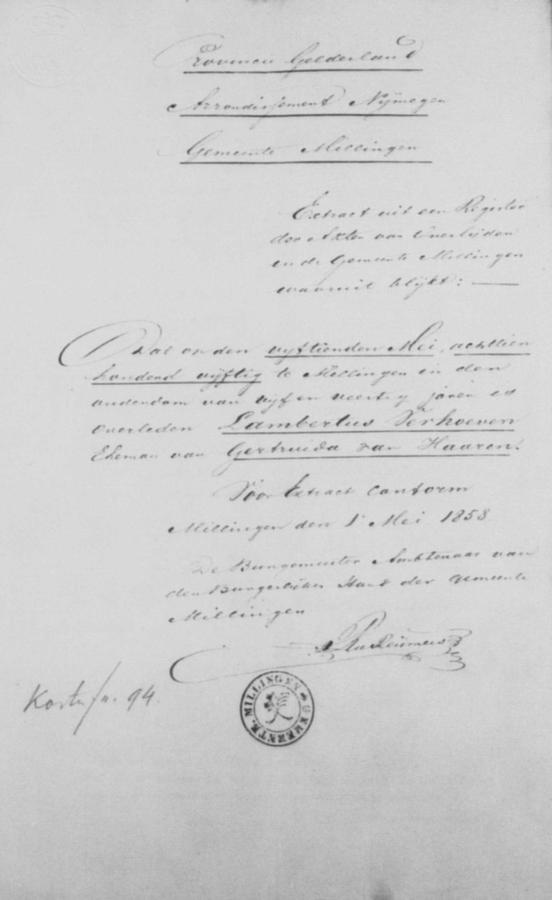 Provincie Gelderland
Arrondissement Nijmegen
Gemeente Millingen
Extract uit een Register
der Akten van Overlijden
in de Gemeente Millingen
waaruit blijkt: —
Dat op den vijftienden Mei, achttien
honderd vijftig te Millingen in den
ouderdom van vijf en veertig jaren is
overleden Lambertus Verhoeven
Eheman van Gertruida van Haaren.
Voor Extract Conform
Millingen den 1 Mei 1858
De Burgemeester Ambtenaar van
den Burgerlijken Stand der gemeente
Millingen
94.
GEMEENTE MILLINGEN